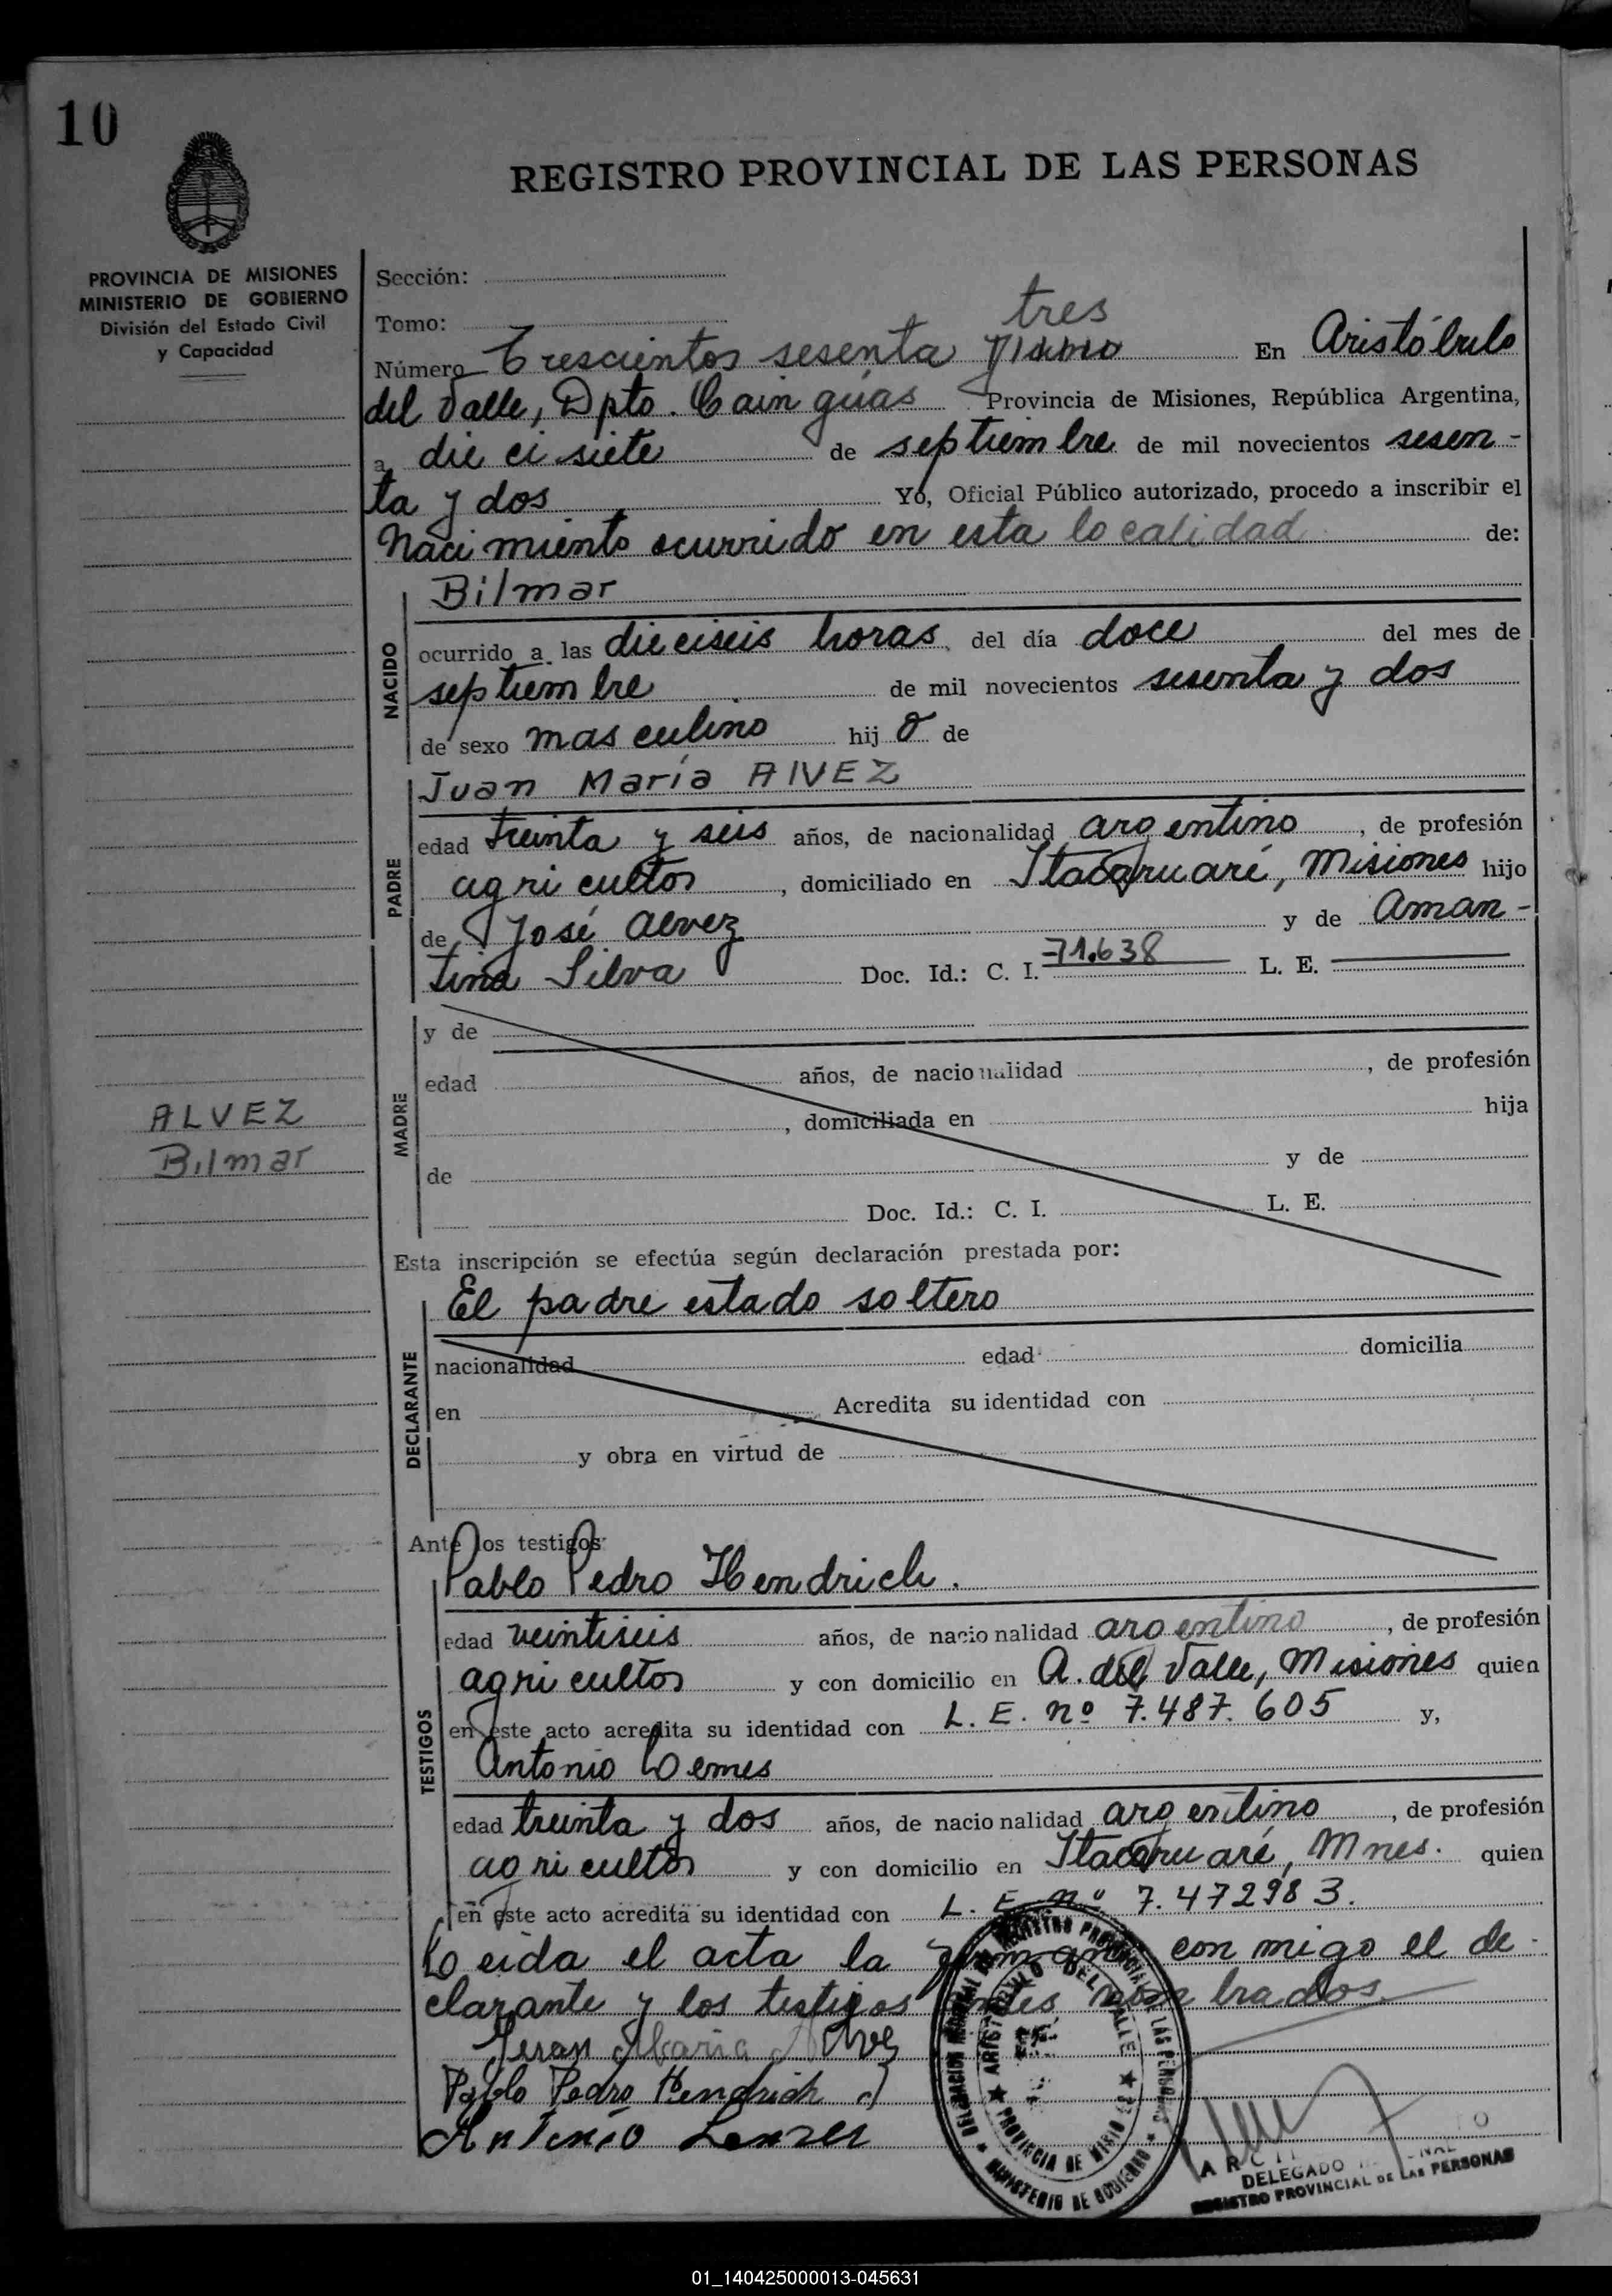 10
REGISTRO PROVINCIAL DE LAS PERSONAS
PROVINCIA DE MISIONES
MINISTERIO DE GOBIERNO
División del Estado Civil
y Capacidad
Sección:
Tomo:
tres
Número Trescientos sesenta En Aristóbulo
del Valle, Dpto. Cainguás Provincia de Misiones, República Argentina,
a diecisiete de septiembre de mil novecientos sesen-
ta y dos Yo, Oficial Público autorizado, procedo a inscribir el
Nacimiento ocurrido en esta localidad de:
NACIDO
Bilmar
ocurrido a las dieciseis horas del día doce del mes de
septiembre de mil novecientos sesenta y dos
de sexo masculino hijo de
PADRE
Juan María AlVEZ
edad treinta y seis años, de nacionalidad argentino, de profesión
agricultor, domiciliado en Itacaruaré, Misiones hijo
de José Alvez y de Aman-
tina Silva Doc. Id.: C. I. 71.638 L. E.
MADRE
y de
edad años, de nacionalidad , de profesión
, domiciliada en hija
de y de
Doc. Id.: C. I. L. E.
ALVEZ
Bilmar
Esta inscripción se efectúa según declaración prestada por:
DECLARANTE
El padre estado soltero
nacionalidad edad domicilia
en Acredita su identidad con
y obra en virtud de
Ante los testigos
TESTIGOS
Pablo Pedro Hendrich.
edad veintiseis años, de nacionalidad argentino, de profesión
agricultor y con domicilio en A. del Valle, Misiones quien
en este acto acredita su identidad con L. E. nº 7.487.605 y,
Antonio Lemes
edad treinta y dos años, de nacionalidad argentino, de profesión
agricultor y con domicilio en Itacaruaré, Mnes. quien
en este acto acredita su identidad con L. E. nº 7.472983.
Leida el acta la firman conmigo el de-
clarante y los testigos antes nombrados
Juan Maria Alvez
Pablo Pedro Hendrich
Antonio Lemes
REGISTRO PROVINCIAL DE LAS PERSONAS
ARISTOBULO DEL VALLE
PROVINCIA DE MISIONES
MINISTERIO DE GOBIERNO
DELEGADO
REGISTRO PROVINCIAL DE LAS PERSONAS
01_140425000013-045631